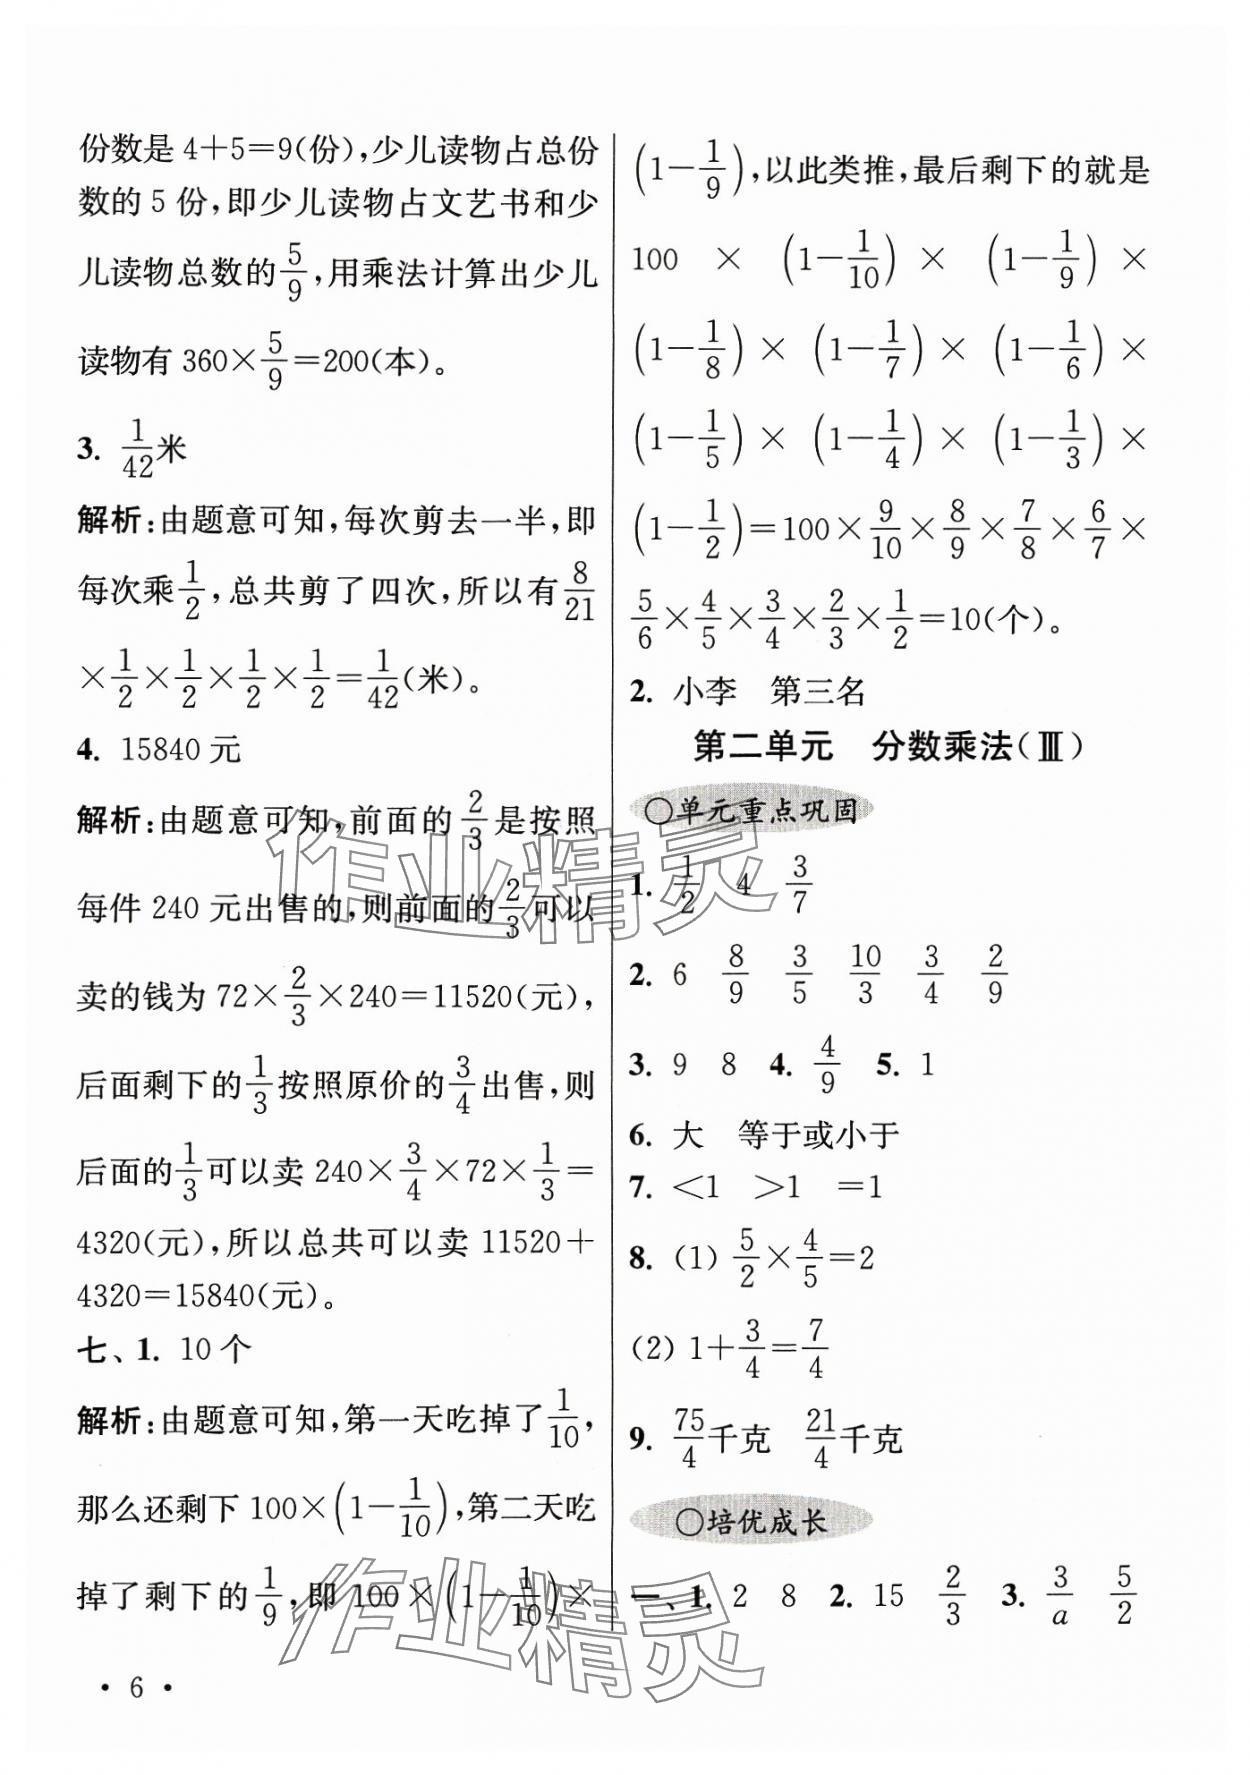 份数是 4+5=9(份),少儿读物占总份
数的 5 份,即少儿读物占文艺书和少
儿读物总数的 5/9,用乘法计算出少儿
读物有 360×5/9=200(本)。
3. 1/42米
解析:由题意可知,每次剪去一半,即
每次乘1/2,总共剪了四次,所以有8/21
×1/2×1/2×1/2×1/2=1/42(米)。
4. 15840 元
解析:由题意可知,前面的2/3是按照
每件 240 元出售的,则前面的2/3可以
卖的钱为 72×2/3×240=11520(元),
后面剩下的1/3按照原价的3/4出售,则
后面的1/3可以卖 240×3/4×72×1/3=
4320(元),所以总共可以卖 11520+
4320=15840(元)。
七、1. 10 个
解析:由题意可知,第一天吃掉了1/10,
那么还剩下 100×(1-1/10),第二天吃
掉了剩下的1/9,即 100×(1-1/10)×
(1-1/9),以此类推,最后剩下的就是
100 × (1-1/10) × (1-1/9) ×
(1-1/8) × (1-1/7) × (1-1/6) ×
(1-1/5) × (1-1/4) × (1-1/3) ×
(1-1/2)=100×9/10×8/9×7/8×6/7×
5/6×4/5×3/4×2/3×1/2=10(个)。
2. 小李 第三名
第二单元 分数乘法(Ⅲ)
○单元重点巩固
1. 1/2 4 3/7
2. 6 8/9 3/5 10/3 3/4 2/9
3. 9 8 4. 4/9 5. 1
6. 大 等于或小于
7. <1 >1 =1
8. (1) 5/2×4/5=2
(2) 1+3/4=7/4
9. 75/4千克 21/4千克
○培优成长
一、1. 2 8 2. 15 2/3 3. 3/a 5/2
• 6 •
作业精灵
作业精灵